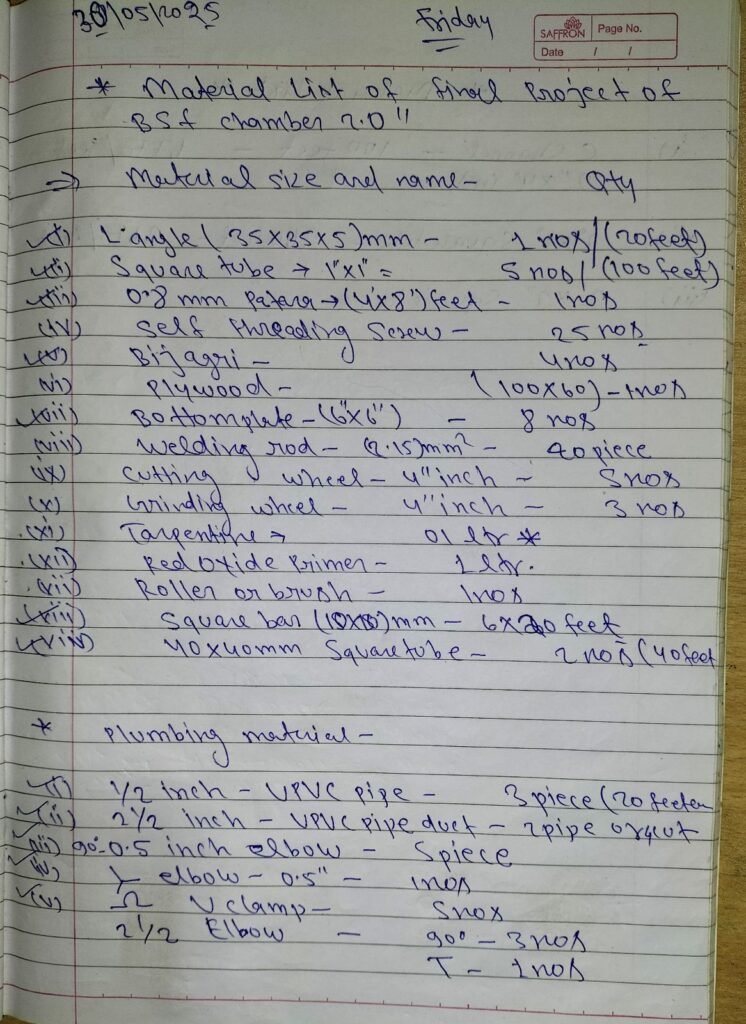 30/05/2025 Friday
SAFFRON Page No.
Date / /
* Material List of final Project of
BSF chamber 2.0"
⇒ Material size and name - Qty
i) L angle (35x35x5)mm - 1 nos/(20feet)
ii) Square tube → 1"x1" = 5 nos/(100 feet)
iii) 0.8 mm Patara → (4'x8')feet - 1nos
(iv) Self threading Screw - 25 nos
v) Bijagri - 4nos
vi) Plywood - (100x60) - 1nos
vii) Bottomplate - (6"x6") - 8 nos
viii) Welding rod - (2.15)mm² - 40 piece
ix) Cutting wheel - 4" inch - 5nos
(x) Grinding wheel - 4" inch - 3 nos
(xi) Tarpentine → 01 ltr *
(xii) Red Oxide Primer - 1 ltr.
(xii) Roller or brush - 1nos
(xiii) Square bar (10x10)mm - 6x20 feet
(xiv) 40x40mm Square tube - 2 nos (40feet
* Plumbing material -
(i) 1/2 inch - UPVC pipe - 3 piece (20 feet
(ii) 2 1/2 inch - UPVC pipe duct - 2pipe
(iii) 90°-0.5 inch elbow - 5piece
(iv) Y elbow - 0.5" - 1nos
(v) Ω U clamp - 5nos
2 1/2 Elbow - 90° - 3nos
T - 1nos